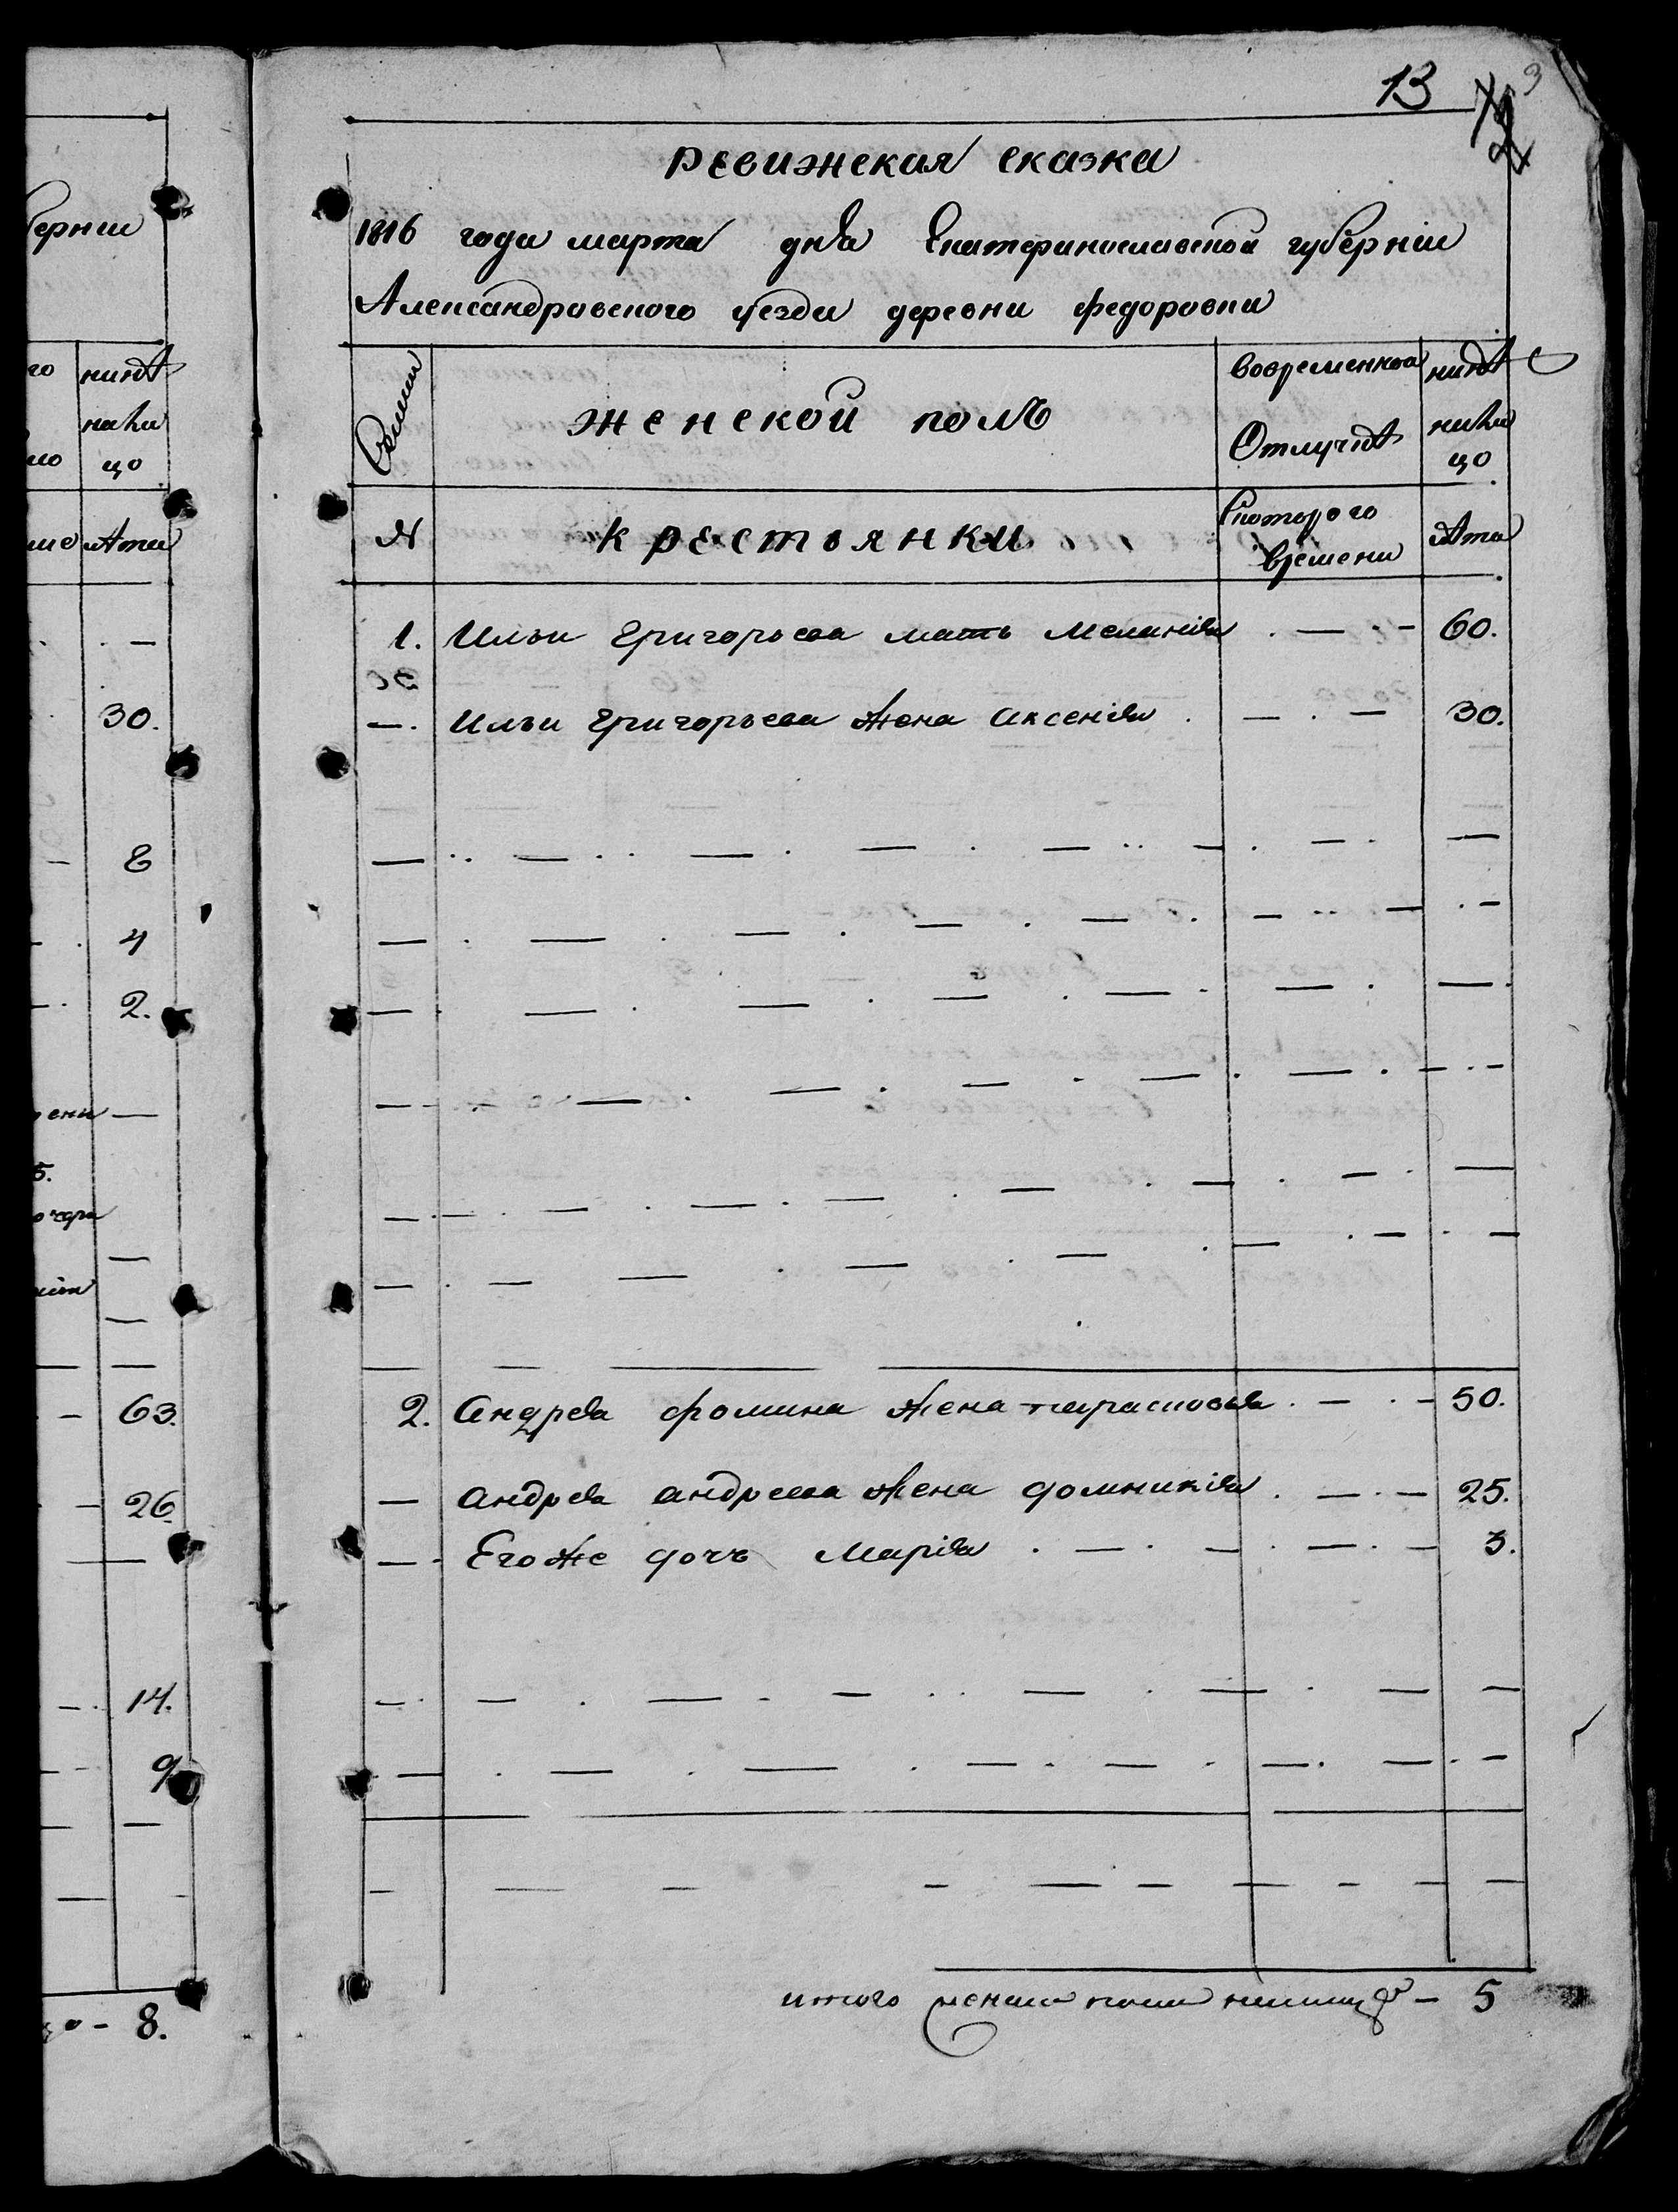 13
ревижская сказка
1816 года марта дня Екатеринославской губерніи
Александровского уезда деревни федоровки
Семьи
женской полъ
Вовременной
Отлучкѣ
нинѣ
на ли
цо
№
крестьянки
Скоторого
времени
лѣта
1. Ильи Григорьева мать Меланія . — . – 60.
—. Ильи Григорьева жена Аксенія . — . — 30.
2. Андрея фомина жена парасковья . — . – 50.
— Андрея андреева жена домникія . — . – 25.
— Егоже дочь Марія . — . — . — . – 3.
итого женска пола налицо – 5
берніи
го
нинѣ
на ли
ло
цо
лѣта
30.
8
4
2.
5.
63.
26.
14.
9
цо – 8.